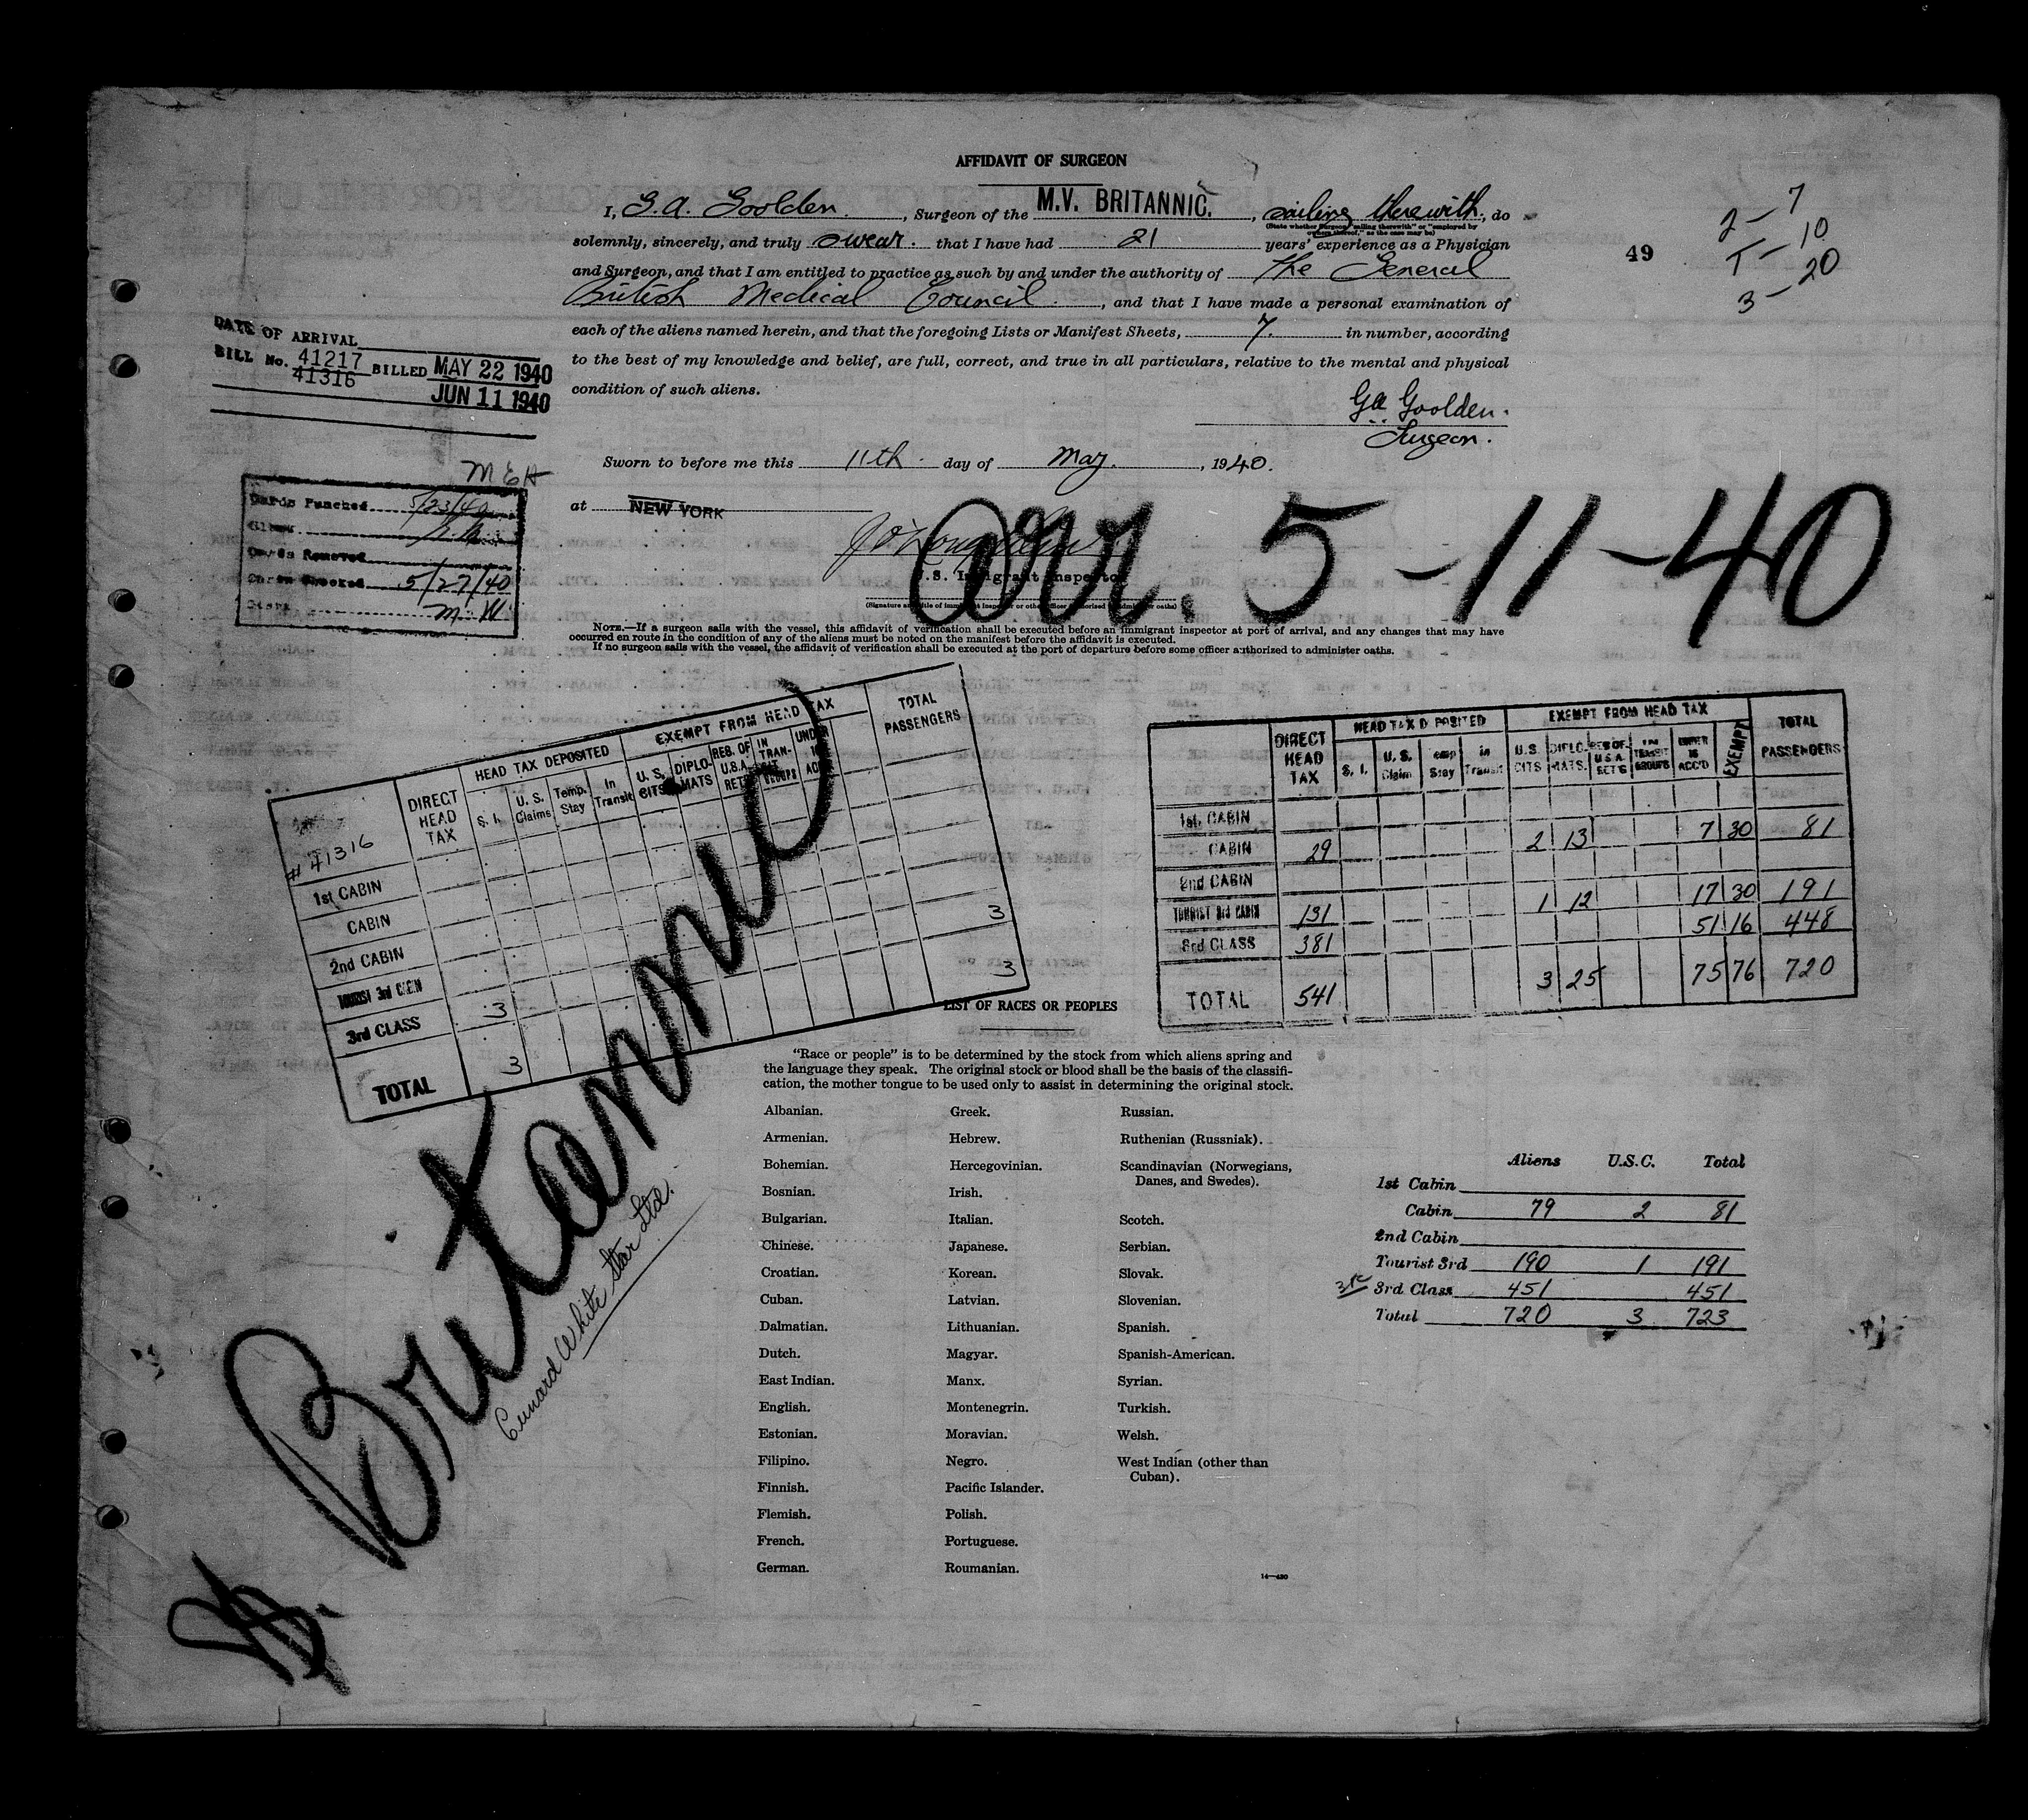 AFFIDAVIT OF SURGEON
I, G.A. Goolden, Surgeon of the M.V. BRITANNIC., sailing therewith, do
(State whether Surgeon "sailing therewith" or "employed by
owners thereof," as the case may be)
solemnly, sincerely, and truly swear. that I have had 21 years' experience as a Physician
and Surgeon, and that I am entitled to practice as such by and under the authority of the General
British Medical Council., and that I have made a personal examination of
each of the aliens named herein, and that the foregoing Lists or Manifest Sheets, 7. in number, according
to the best of my knowledge and belief, are full, correct, and true in all particulars, relative to the mental and physical
condition of such aliens.
49
2 - 7
T - 10
3 - 20
DATE OF ARRIVAL
BILL No. 41217 BILLED MAY 22 1940
41316 JUN 11 1940
GA Goolden.
Surgeon.
Sworn to before me this 11th. day of May., 1940.
at NEW YORK
U.S. Immigrant Inspector
(Signature and title of immigrant inspector or other officer authorised to administer oaths)
arr. 5-11-40
MEH
Cards Punched 5/23/40
Cards Removed
Checked 5/27/40
M.W.
NOTE.—If a surgeon sails with the vessel, this affidavit of verification shall be executed before an immigrant inspector at port of arrival, and any changes that may have
occurred en route in the condition of any of the aliens must be noted on the manifest before the affidavit is executed.
If no surgeon sails with the vessel, the affidavit of verification shall be executed at the port of departure before some officer authorized to administer oaths.
# 41316
DIRECT HEAD TAX
HEAD TAX DEPOSITED
EXEMPT FROM HEAD TAX
TOTAL PASSENGERS
S. I. U. S. Claims Temp. Stay In Transit U. S. CITS DIPLO-MATS RES. OF U.S.A. RET IN TRAN-SIT GROUPS UNDER 16 ACC
1st CABIN
CABIN
2nd CABIN
TOURIST 3rd CABIN
3rd CLASS 3 3
TOTAL 3 3
DIRECT HEAD TAX
HEAD TAX DEPOSITED
EXEMPT FROM HEAD TAX
TOTAL PASSENGERS
S. I. U. S. Claim Temp Stay in Transit U.S. CITS DIPLO-MATS. RES OF U.S.A. RET'G TRANSIT GROUPS UNDER 16 ACC'D EXEMPT
1st. CABIN
CABIN 29 2 13 7 30 81
2nd CABIN
TOURIST 3rd CABIN 131 1 12 17 30 191
3rd CLASS 381 51 16 448
TOTAL 541 3 25 75 76 720
Britannic
Cunard White Star Ltd.
LIST OF RACES OR PEOPLES
"Race or people" is to be determined by the stock from which aliens spring and
the language they speak. The original stock or blood shall be the basis of the classifi-
cation, the mother tongue to be used only to assist in determining the original stock.
Albanian.
Armenian.
Bohemian.
Bosnian.
Bulgarian.
Chinese.
Croatian.
Cuban.
Dalmatian.
Dutch.
East Indian.
English.
Estonian.
Filipino.
Finnish.
Flemish.
French.
German.
Greek.
Hebrew.
Hercegovinian.
Irish.
Italian.
Japanese.
Korean.
Latvian.
Lithuanian.
Magyar.
Manx.
Montenegrin.
Moravian.
Negro.
Pacific Islander.
Polish.
Portuguese.
Roumanian.
Russian.
Ruthenian (Russniak).
Scandinavian (Norwegians,
Danes, and Swedes).
Scotch.
Serbian.
Slovak.
Slovenian.
Spanish.
Spanish-American.
Syrian.
Turkish.
Welsh.
West Indian (other than
Cuban).
14—430
Aliens U.S.C. Total
1st Cabin
Cabin 79 2 81
2nd Cabin
Tourist 3rd 190 1 191
3rd Class 451 451
Total 720 3 723